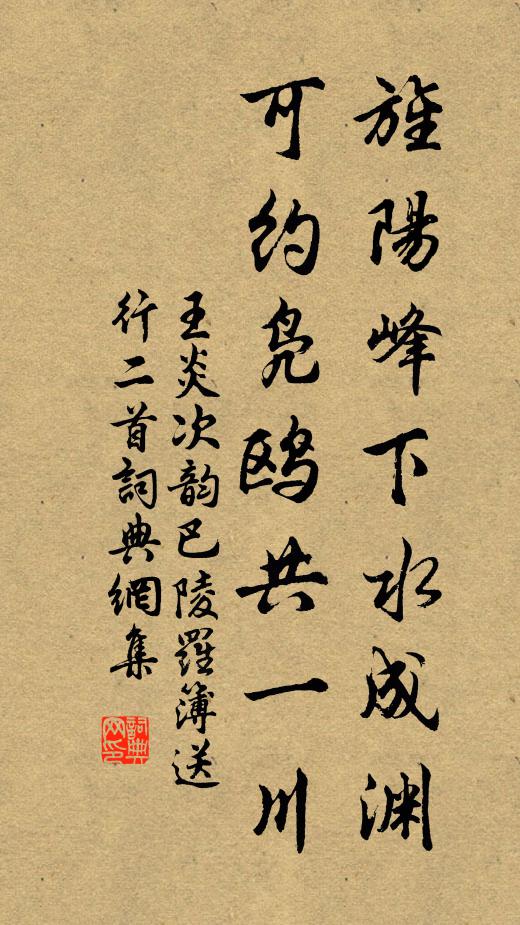 旌陽峰下水成渊
可约凫鸥共一川
王炎次韵巴陵羅簿送
行二首詞典網集
詞典
网印